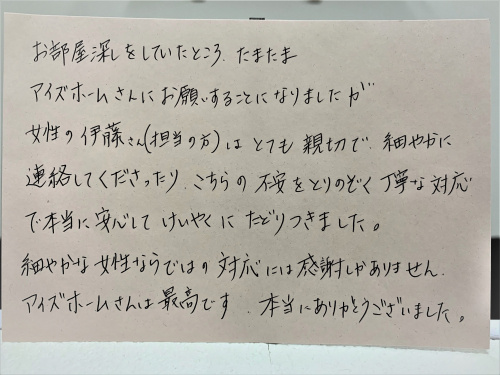 お部屋深しをしていたところ、たまたま
アイズホームさんにお願いすることになりましたが
女性の伊藤さん(担当の方)はとても親切で、細やかに
連絡してくださったり、こちらの不安をとりのぞく丁寧な対応
で本当に安心してけいやくにたどりつきました。
細やかな女性ならではの対応には感謝しかありません。
アイズホームさんは最高です。本当にありがとうございました。